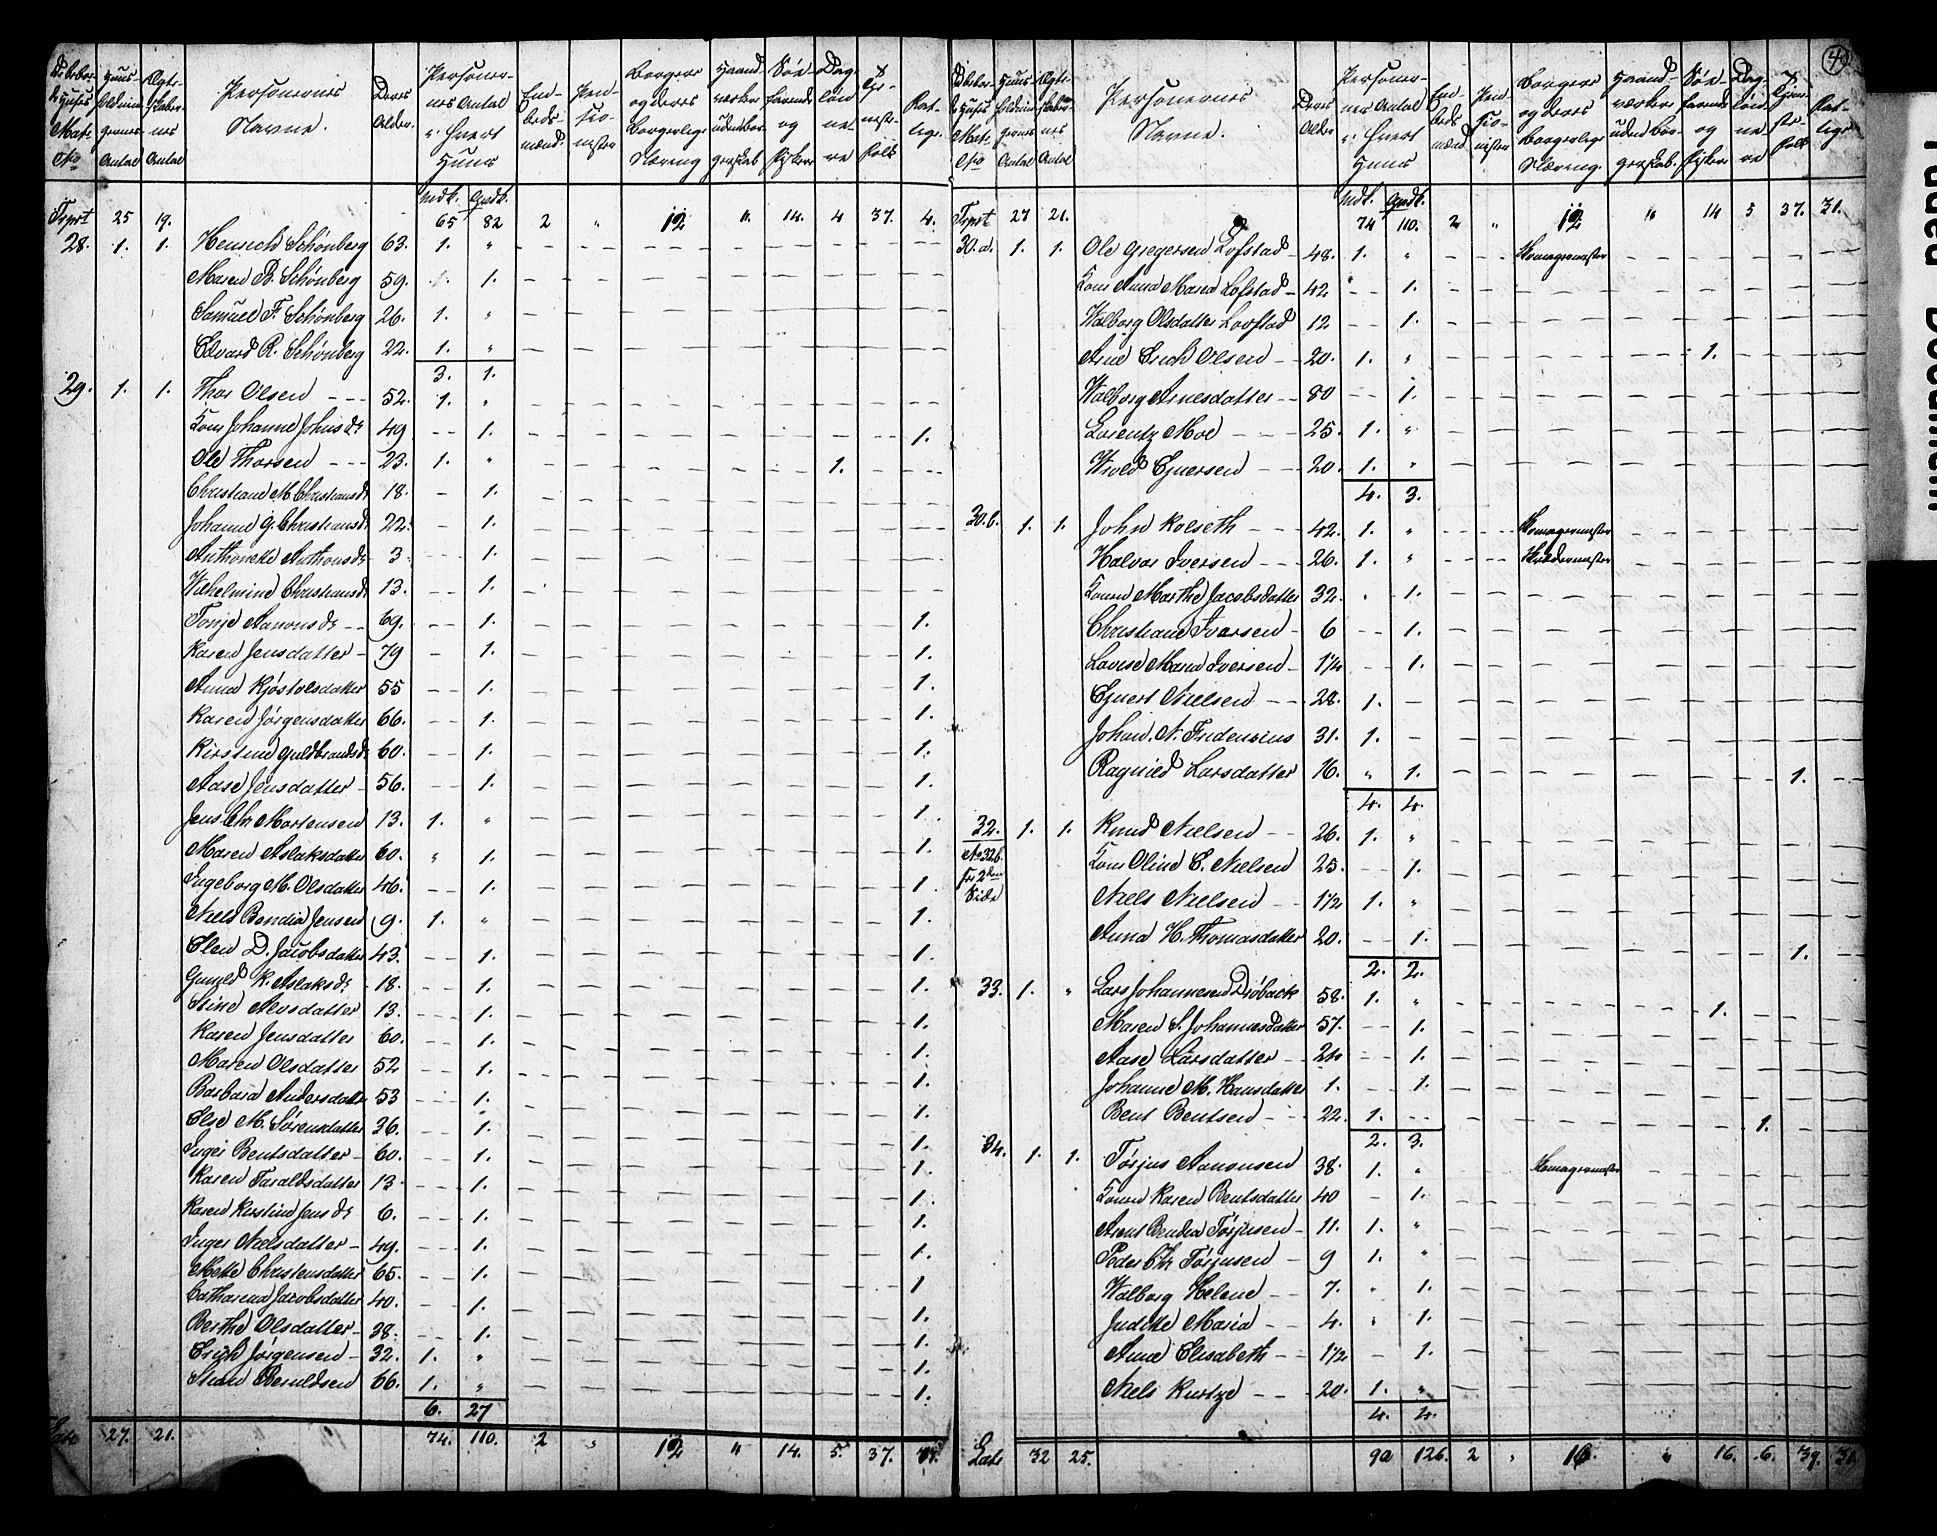 4
Personernes Navne.
Deres Alder.
Mdk. Qvdk.
Trprt 25 19. 65 82 2 " 12 " 14. 4 37. 4.
28. 1. 1. Henrich Schönberg 63. 1. "
Maren B. Schönberg 59. 1.
Samuel F. Schönberg 26. 1. "
Edvard R. Schönberg 22. 1. "
3. 1.
29. 1. 1. Thor Olsen 52. 1. "
Kone Johanne Johnsdr 49 1. 1.
Ole Thorsen 23. 1. " 1.
Christiane M. Christiansdr 18. 1.
Johanne G. Christiansdr 22. 1.
Anthonette Anthonsdr 3 1.
Wilhelmine Christiansdr 13. 1.
Tonje Aanonsdr 69. 1. 1.
Karen Jensdatter 79 1. 1.
Anna Kjöstolsdatter 55 1. 1.
Karen Jörgensdatter 66. 1. 1.
Kirstine Guldbrandsdr 60. 1. 1.
Aase Jensdatter 56. 1. 1.
Jens Chr Mortensen 13. 1. " 1.
Maren Aslaksdatter 60. " 1. 1.
Ingeborg M. Olsdatter 46. 1. 1.
Niels Bendix Jensen 9. 1. " 1.
Elen D. Jacobsdatter 43. 1. 1.
Gunild K. Aslaksdr 18. 1. 1.
Stine Alvsdatter 13. 1. 1.
Karen Jensdatter 60. 1. 1.
Maren Olsdatter 52 1. 1.
Barbara Andersdatter 53 1. 1.
Else M. Sörensdatter 36. 1. 1.
Inger Bentsdatter 60. 1. 1.
Karen Taraldsdatter 13 1. 1.
Karen Kirstine Jensdr 6. 1. 1.
Inger Nielsdatter 49. 1. 1.
Mette Christensdatter 65. 1. 1
Catharena Jacobsdatter 40. 1. 1.
Berthe Olsdatter 38. 1. 1.
Erich Jörgensen 32. 1. " 1.
66. 1. " 1.
6. 27
Lats 27. 21. 74. 110. 2 " 12 " 14. 5. 37. 31.
Personernes Navne.
Deres Alder
Mdk. Qvdk.
Trprt 27 21. 74 110. 2 " 12 " 14 5 37. 31.
30.a. 1. 1. Ole Gregersen Lofstad 48. 1. " Skomagermester
Kone Anna Maria Lofstad 42 1.
Walborg Olsdatter Lovstad 12 1.
Arne Erich Olsen 20. 1. " 1.
Walborg Arnesdatter 80 1.
Lorentz Moe 25. 1. "
20. 1. "
4. 3.
30.b. 1. 1. John Kolseth 42. 1. " Skomagermester
Halvor Iversen 26. 1. " Skræddermester
Konen Marthe Jacobsdatter 32. " 1.
Christiane Ivarsen 6 1.
Lovise Maria Iversen 1½ 1.
Ejvert Nielsen 28. 1.
Johan. N. Fredenzius 31. 1.
Ragnild Larsdatter 16. " 1. 1.
4. 4.
32. 1. 1. Knud Nielsen 26. 1. "
No 32b. Kone Oline C. Nielsen 25. 1.
fr 2den Side Niels Nielsen 1½ 1. "
Anna H. Thomasdatter 20. 1. 1.
2. 2.
33. 1. " Lars Johannesen Dröback 58. 1. " 1.
Maren S. Johannesdatter 57. 1.
Aase Larsdatter 24 1.
Johanne M. Hansdatter 1. 1.
Bent Bentsen 22. 1. 1.
2. 3.
34. 1. 1. Törjus Aanonsen 38. 1. " Skomagermester
Konen Karen Bentsdatter 40 1.
Arent Bendix Törjusen 11. 1. "
Peder Chr Törjusen 9 1. "
Walborg Helene 7. " 1.
Judithe Maria 4. " 1.
Anne Elisabeth 1½ 1.
Niels Kurtze 20. 1. "
4. 4.
Lats 32 25. 90 126. 2 " 16. " 16. 6. 39. 31.
Faded Document